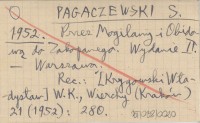 PAGACZEWSKI S.
1952. Przez Mogilany i Obido-
wą do Zakopanego. Wydanie II.
— Warszawa.
Rec.: [Krygowski Wła-
dysław] W.K., Wierchy (Kraków)
21 (1952): 280.